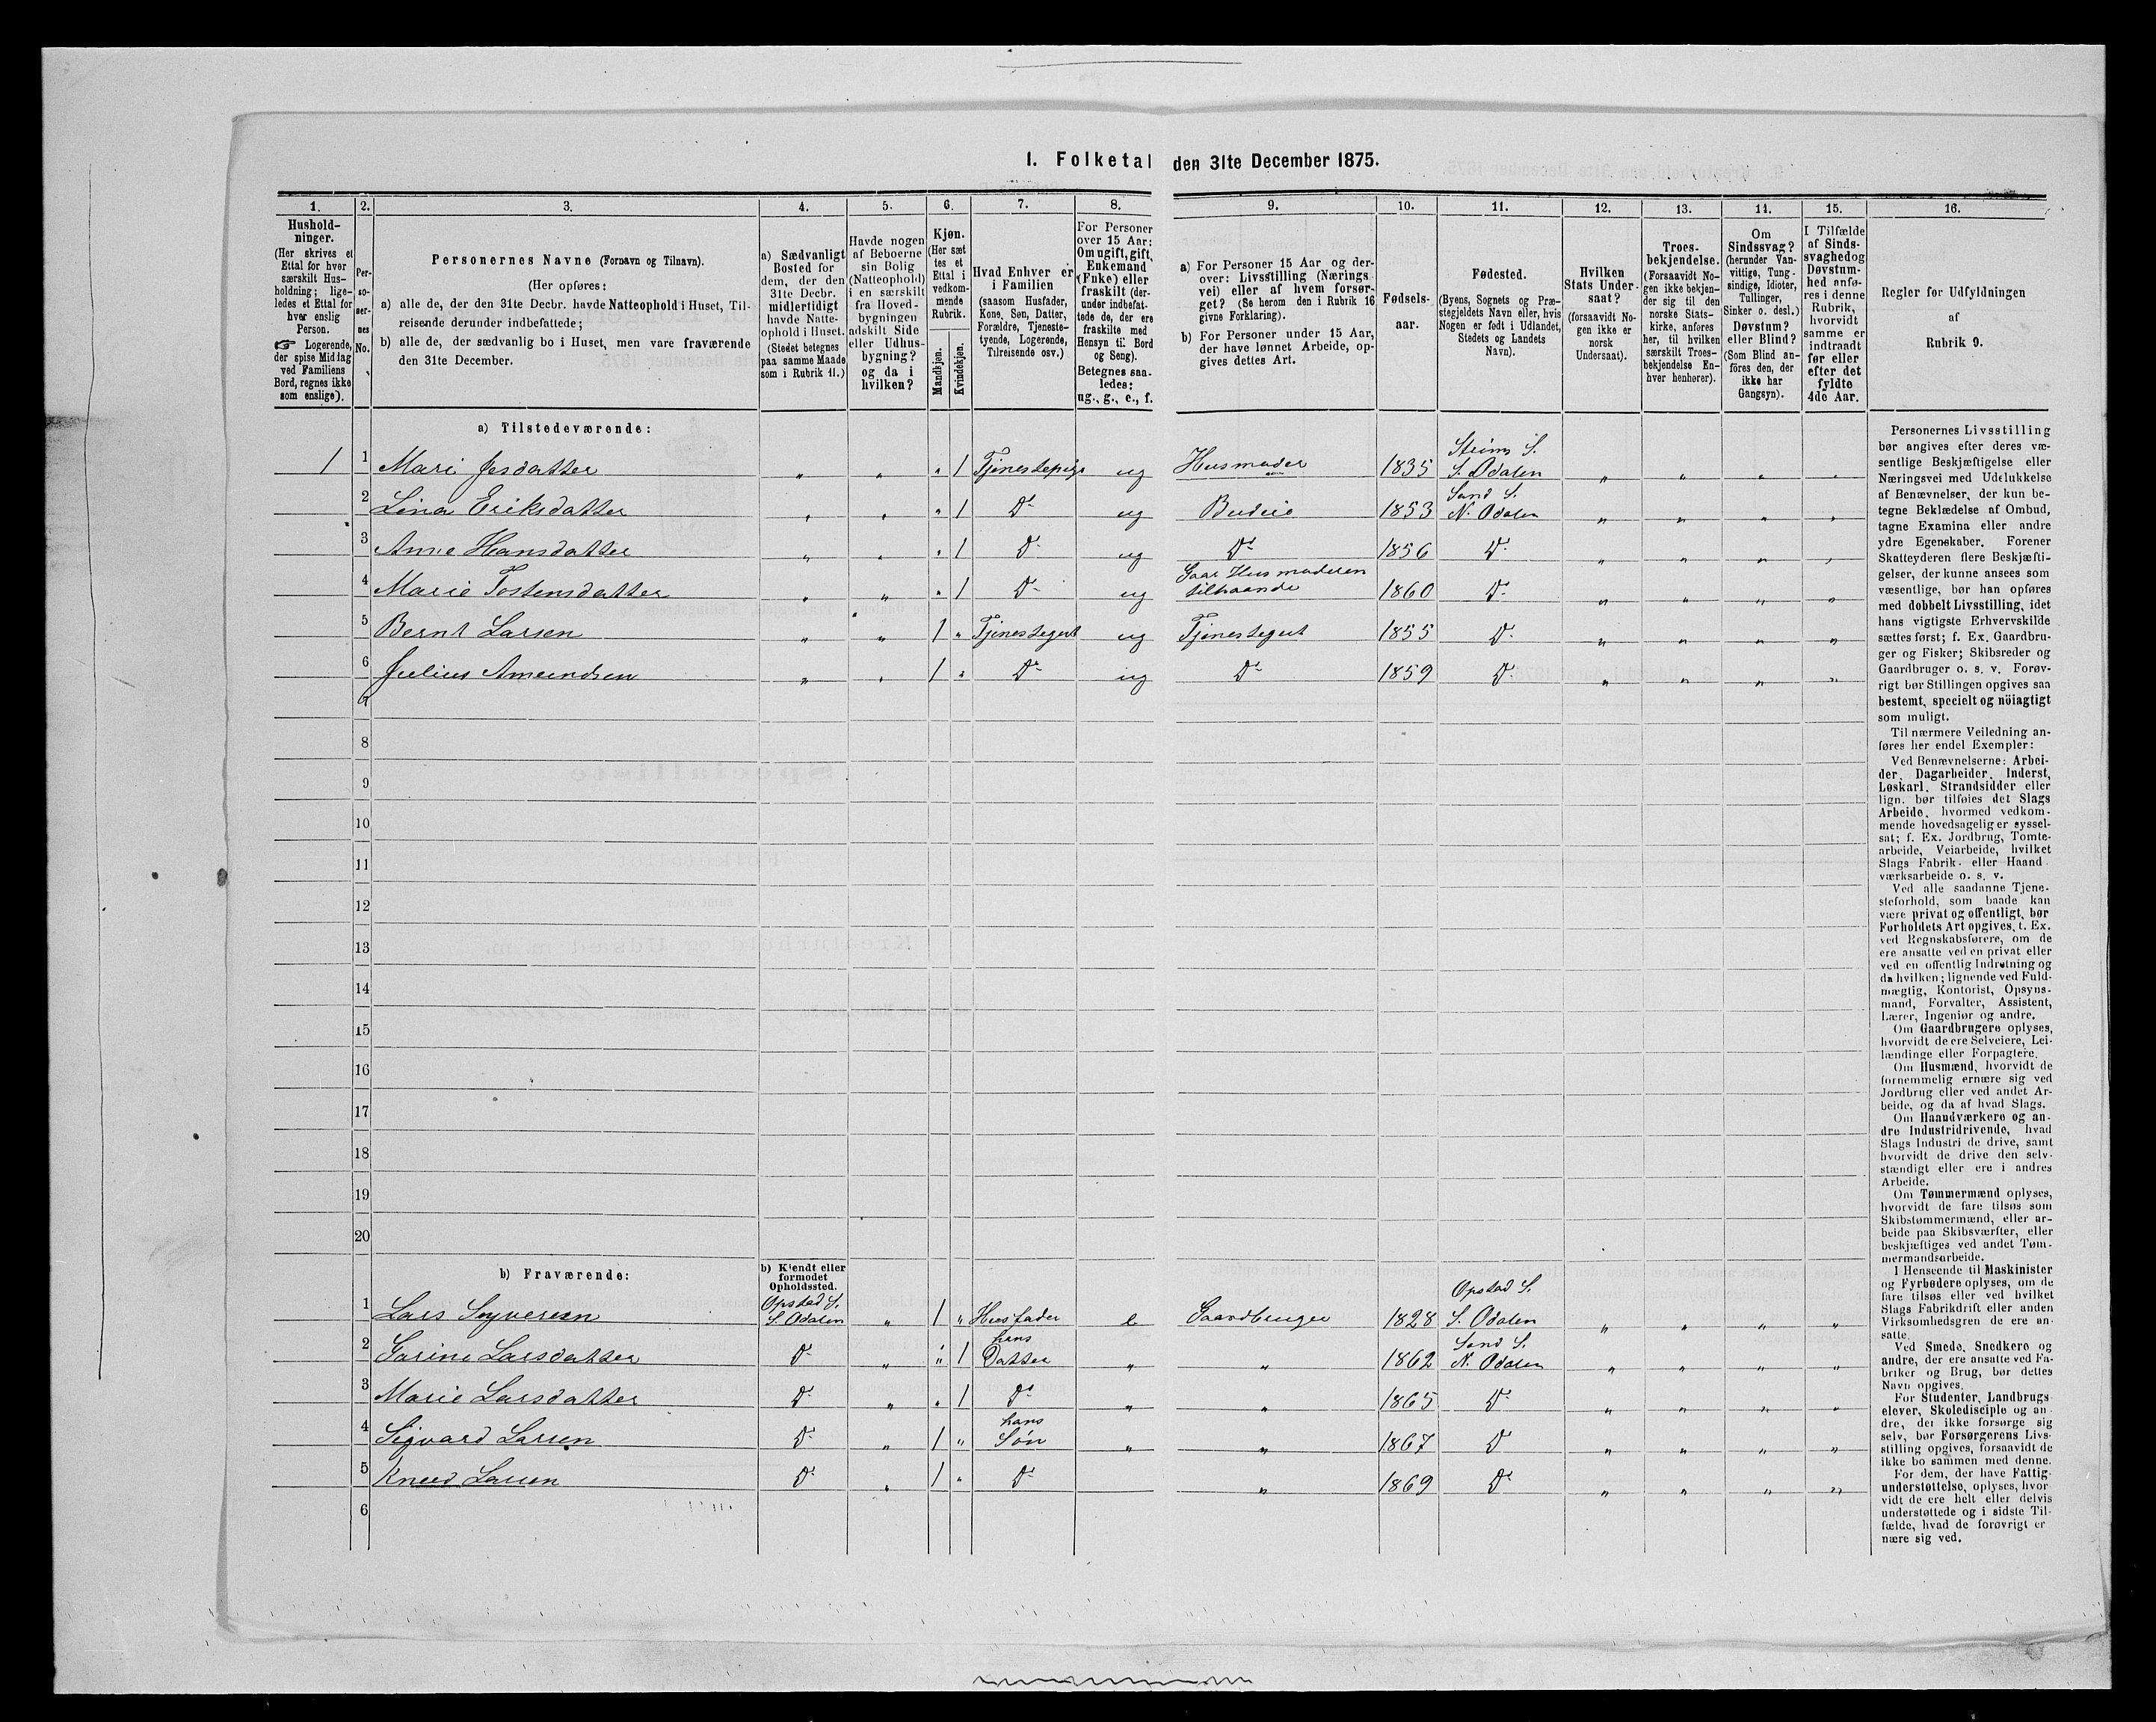 I. Folketal den 31te December 1875.
1. 2. 3. 4. 5. 6. 7. 8. 9. 10. 11. 12. 13. 14. 15. 16.
Hushold-
ninger.
(Her skrives et
Ettal for hver
særskilt Hus-
holdning; lige-
ledes et Ettal for
hver enslig
Person.
☞ Logerende,
der spise Middag
ved Familiens
Bord, regnes ikke
som enslige).
Per-
so-
ner-
nes
No.
Personernes Navne (Fornavn og Tilnavn).
(Her opføres:
a) alle de, der den 31te Decbr. havde Natteophold i Huset, Til-
reisende derunder indbefattede;
b) alle de, der sædvanlig bo i Huset, men vare fraværende
den 31te December.
a) Sædvanligt
Bosted for
dem, der den
31te Decbr.
midlertidigt
havde Natte-
ophold i Huset.
(Stedet betegnes
paa samme Maade
som i Rubrik 11.)
Havde nogen
af Beboerne
sin Bolig
(Natteophold)
i en særskilt
fra Hoved-
bygningen
adskilt Side
eller Udhus-
bygning?
og da i
hvilken?
Kjøn.
(Her sæt
tes et
Ettal i
vedkom-
mende
Rubrik.
Mandkjøn.
Kvindekjøn.
Hvad Enhver er
i Familien
(saasom Husfader,
Kone, Søn, Datter,
Forældre, Tjeneste-
tyende, Logerende,
Tilreisende osv.)
For Personer
over 15 Aar:
Om ugift, gift,
Enkemand
(Enke) eller
fraskilt (der-
under indbefat-
tede de, der ere
fraskilte med
Hensyn til Bord
og Seng).
Betegnes saa-
ledes:
ug., g., e., f.
a) For Personer 15 Aar og der-
over: Livsstilling (Nærings
vei) eller af hvem forsør-
get? (Se herom den i Rubrik 16
givne Forklaring).
b) For Personer under 15 Aar,
der have lønnet Arbeide, op-
gives dettes Art.
Fødsels-
aar.
Fødested.
(Byens, Sognets og Præ-
stegjeldets Navn eller, hvis
Nogen er født i Udlandet,
Stedets og Landets
Navn).
Hvilken
Stats Under-
saat?
(forsaavidt No-
gen ikke er
norsk
Undersaat).
Troes-
bekjendelse.
(Forsaavidt No-
gen ikke bekjen-
der sig til den
norske Stats-
kirke, anføres
her, til hvilken
særskilt Troes-
bekjendelse En-
hver henhører).
Om
Sindssvag?
(herunder Van-
vittige, Tung-
sindige, Idioter,
Tullinger,
Sinker o. desl.)
Døvstum?
eller Blind?
(Som Blind an-
føres den, der
ikke har
Gangsyn).
I Tilfælde
af Sinds-
svaghed og
Døvstum-
hed anfø-
res i denne
Rubrik,
hvorvidt
samme er
indtraadt
før eller
efter det
fyldte
4de Aar.
Regler for Udfyldningen
af
Rubrik 9.
a) Tilstedeværende:
1 1 Mari Jesdatter „ „ „ 1 Tjenestepige ug Husmoder 1835 Strøms S. S. Odalen „ „ „ „
2 Lina Eriksdatter „ „ „ 1 Do ug Budeie 1853 Sand S. N. Odalen „ „ „ „
3 Anne Hansdatter „ „ „ 1 Do ug Do 1856 Do „ „ „ „
4 Marie Tostensdatter „ „ „ 1 Do ug Gaar Husmoderen tilhaande 1860 Do „ „ „ „
5 Bernt Larsen „ „ 1 „ Tjenestegut ug Tjenestegut 1855 Do „ „ „ „
6 Julius Amundsen „ „ 1 „ Do ug Do 1859 Do „ „ „ „
7
8
9
10
11
12
13
14
15
16
17
18
19
20
b) Fraværende:
b) Kjendt eller
formodet
Opholdssted.
1 Lars Syversen Opstad S. S. Odalen „ 1 „ Husfader e Gaardbruger 1828 Opstad S. S. Odalen „ „ „ „
2 Larsdatter Do „ „ 1 hans Datter „ „ 1862 Sand S. N. Odalen „ „ „ „
3 Marie Larsdatter Do „ „ 1 Do „ „ 1865 Do „ „ „ „
4 Sigvard Larsen Do „ 1 „ hans Søn „ „ 1867 Do „ „ „ „
5 Knud Larsen Do „ 1 „ Do „ 1869 Do „ „ „ „
6
Personernes Livsstilling
bør angives efter deres væ-
sentlige Beskjæftigelse eller
Næringsvei med Udelukkelse
af Benævnelser, der kun be-
tegne Beklædelse af Ombud,
tagne Examina eller andre
ydre Egenskaber. Forener
Skatteyderen flere Beskjæfti-
gelser, der kunne ansees som
væsentlige, bør han opføres
med dobbelt Livsstilling, idet
hans vigtigste Erhvervskilde
sættes først; f. Ex. Gaardbru-
ger og Fisker; Skibsreder og
Gaardbruger o. s. v. Forøv-
rigt bør Stillingen opgives saa
bestemt, specielt og nöiagtigt
som muligt.
Til nærmere Veiledning an-
føres her endel Exempler:
Ved Benævnelserne: Arbei-
der, Dagarbeider, Inderst,
Løskarl, Strandsidder eller
lign. bør tilføies det Slags
Arbeide, hvormed vedkom-
mende hovedsagelig er syssel-
sat; f. Ex. Jordbrug, Tomte-
arbeide, Veiarbeide, hvilket
Slags Fabrik- eller Haand-
værksarbeide o. s. v.
Ved alle saadanne Tjene-
steforhold, som baade kan
være privat og offentligt, bør
Forholdets Art opgives, t. Ex.
ved Regnskabsførere, om de
ere ansatte ved en privat eller
ved en offentlig Indretning og
da hvilken; lignende ved Fuld-
mægtig, Kontorist, Opsyns-
mand, Forvalter, Assistent,
Lærer, Ingeniør og andre.
Om Gaardbrugere oplyses,
hvorvidt de ere Selveiere, Lei-
lændinge eller Forpagtere.
Om Husmænd, hvorvidt de
fornemmelig ernære sig ved
Jordbrug eller ved andet Ar-
beide, og da af hvad Slags.
Om Haandværkere og an-
dre Industridrivende, hvad
Slags Industri de drive, samt
hvorvidt de drive den selv-
stændigt eller ere i andres
Arbeide.
Om Tømmermænd oplyses,
hvorvidt de fare tilsøs som
Skibstømmermænd, eller ar-
beide paa Skibsværfter, eller
beskjæftiges ved andet Tøm-
mermandsarbeide.
I Henseende til Maskinister
og Fyrbødere oplyses, om de
fare tilsøs eller ved hvilket
Slags Fabrikdrift eller anden
Virksomhedsgren de ere an-
satte.
Ved Smede, Snedkere og
andre, der ere ansatte ved Fa-
briker og Brug, bør dettes
Navn opgives.
For Studenter, Landbrugs-
elever, Skoledisciple og an-
dre, der ikke forsørge sig
selv, bør Forsørgerens Livs-
stilling opgives, forsaavidt de
ikke bo sammen med denne.
For dem, der have Fattig-
understøttelse, oplyses, hvor-
vidt de ere helt eller delvis
understøttede og i sidste Til-
fælde, hvad de forøvrigt er
nære sig ved.